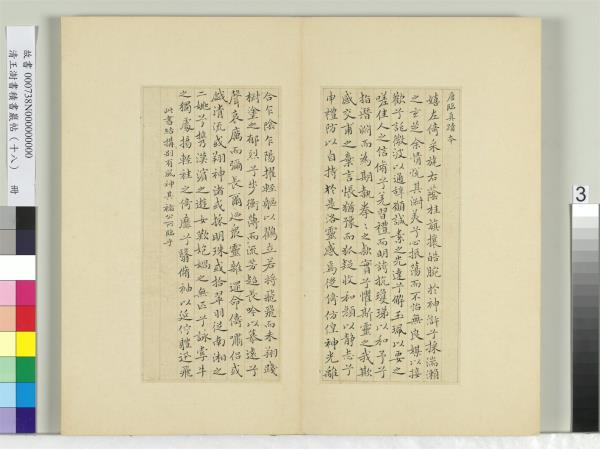 故書 000738N000000000
清王澍書積書巖帖(十八) 冊
3
唐臨真蹟本
嬉左倚采旄右蔭桂旗攘皓腕於神滸兮採湍瀨
之玄芝余情悅其淑美兮心振蕩而不怡無良媒以接
歡兮託微波以通辭願誠素之先達兮解玉珮以要之
嗟佳人之信脩兮羌習禮而明詩抗瓊珶以和予兮
指潛淵而為期執拳拳之款實兮懼斯靈之我欺
感交甫之棄言悵猶豫而狐疑收和顏以靜志兮
申禮防以自持於是洛靈感焉徙倚仿偟神光離
合乍陰乍陽擢輕軀以鶴立若將飛而未翔踐
椒塗之郁烈兮步衡薄而流芳超長吟以慕遠兮
聲哀厲而彌長爾迺眾靈雜遝命儔嘯侶或
戲清流或翔神渚或採明珠或拾翠羽從南湘之
二姚兮攜漢濱之遊女歎炮媧之無匹兮詠牽牛
之獨處揚輕袿之倚靡兮翳脩袖以延佇體迅飛
此書結構別有風神真褚公所臨乎